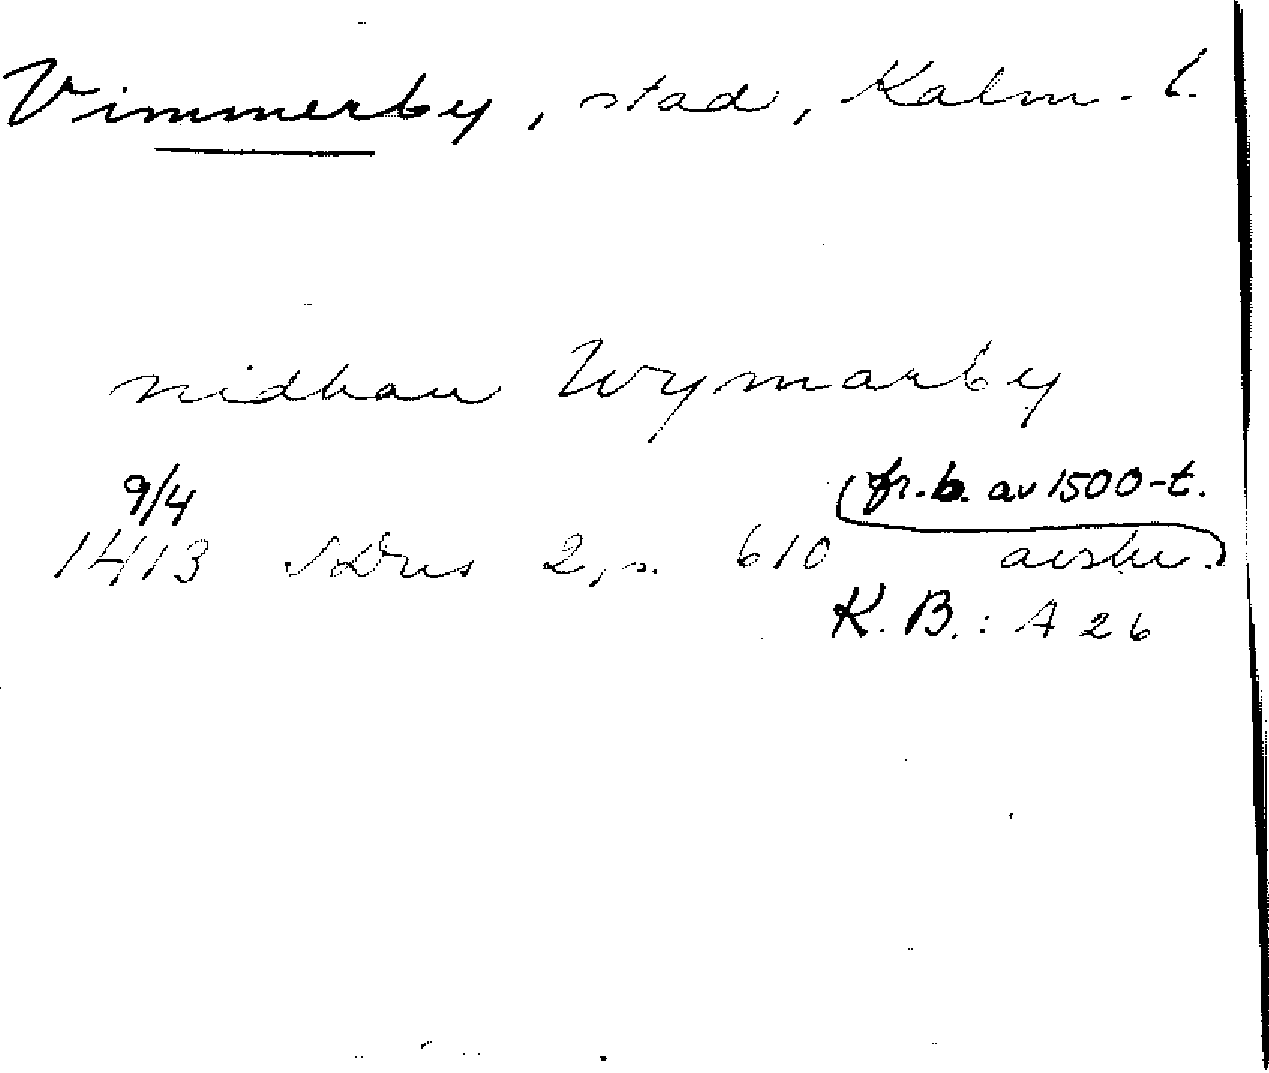 Vimmerby, stad, Kalm. l.
nidhan Wymarby
9/4 (fr. b. av 1500-t.
1413 SDns 2, s. 610 avskr.)
K. B.: A 26